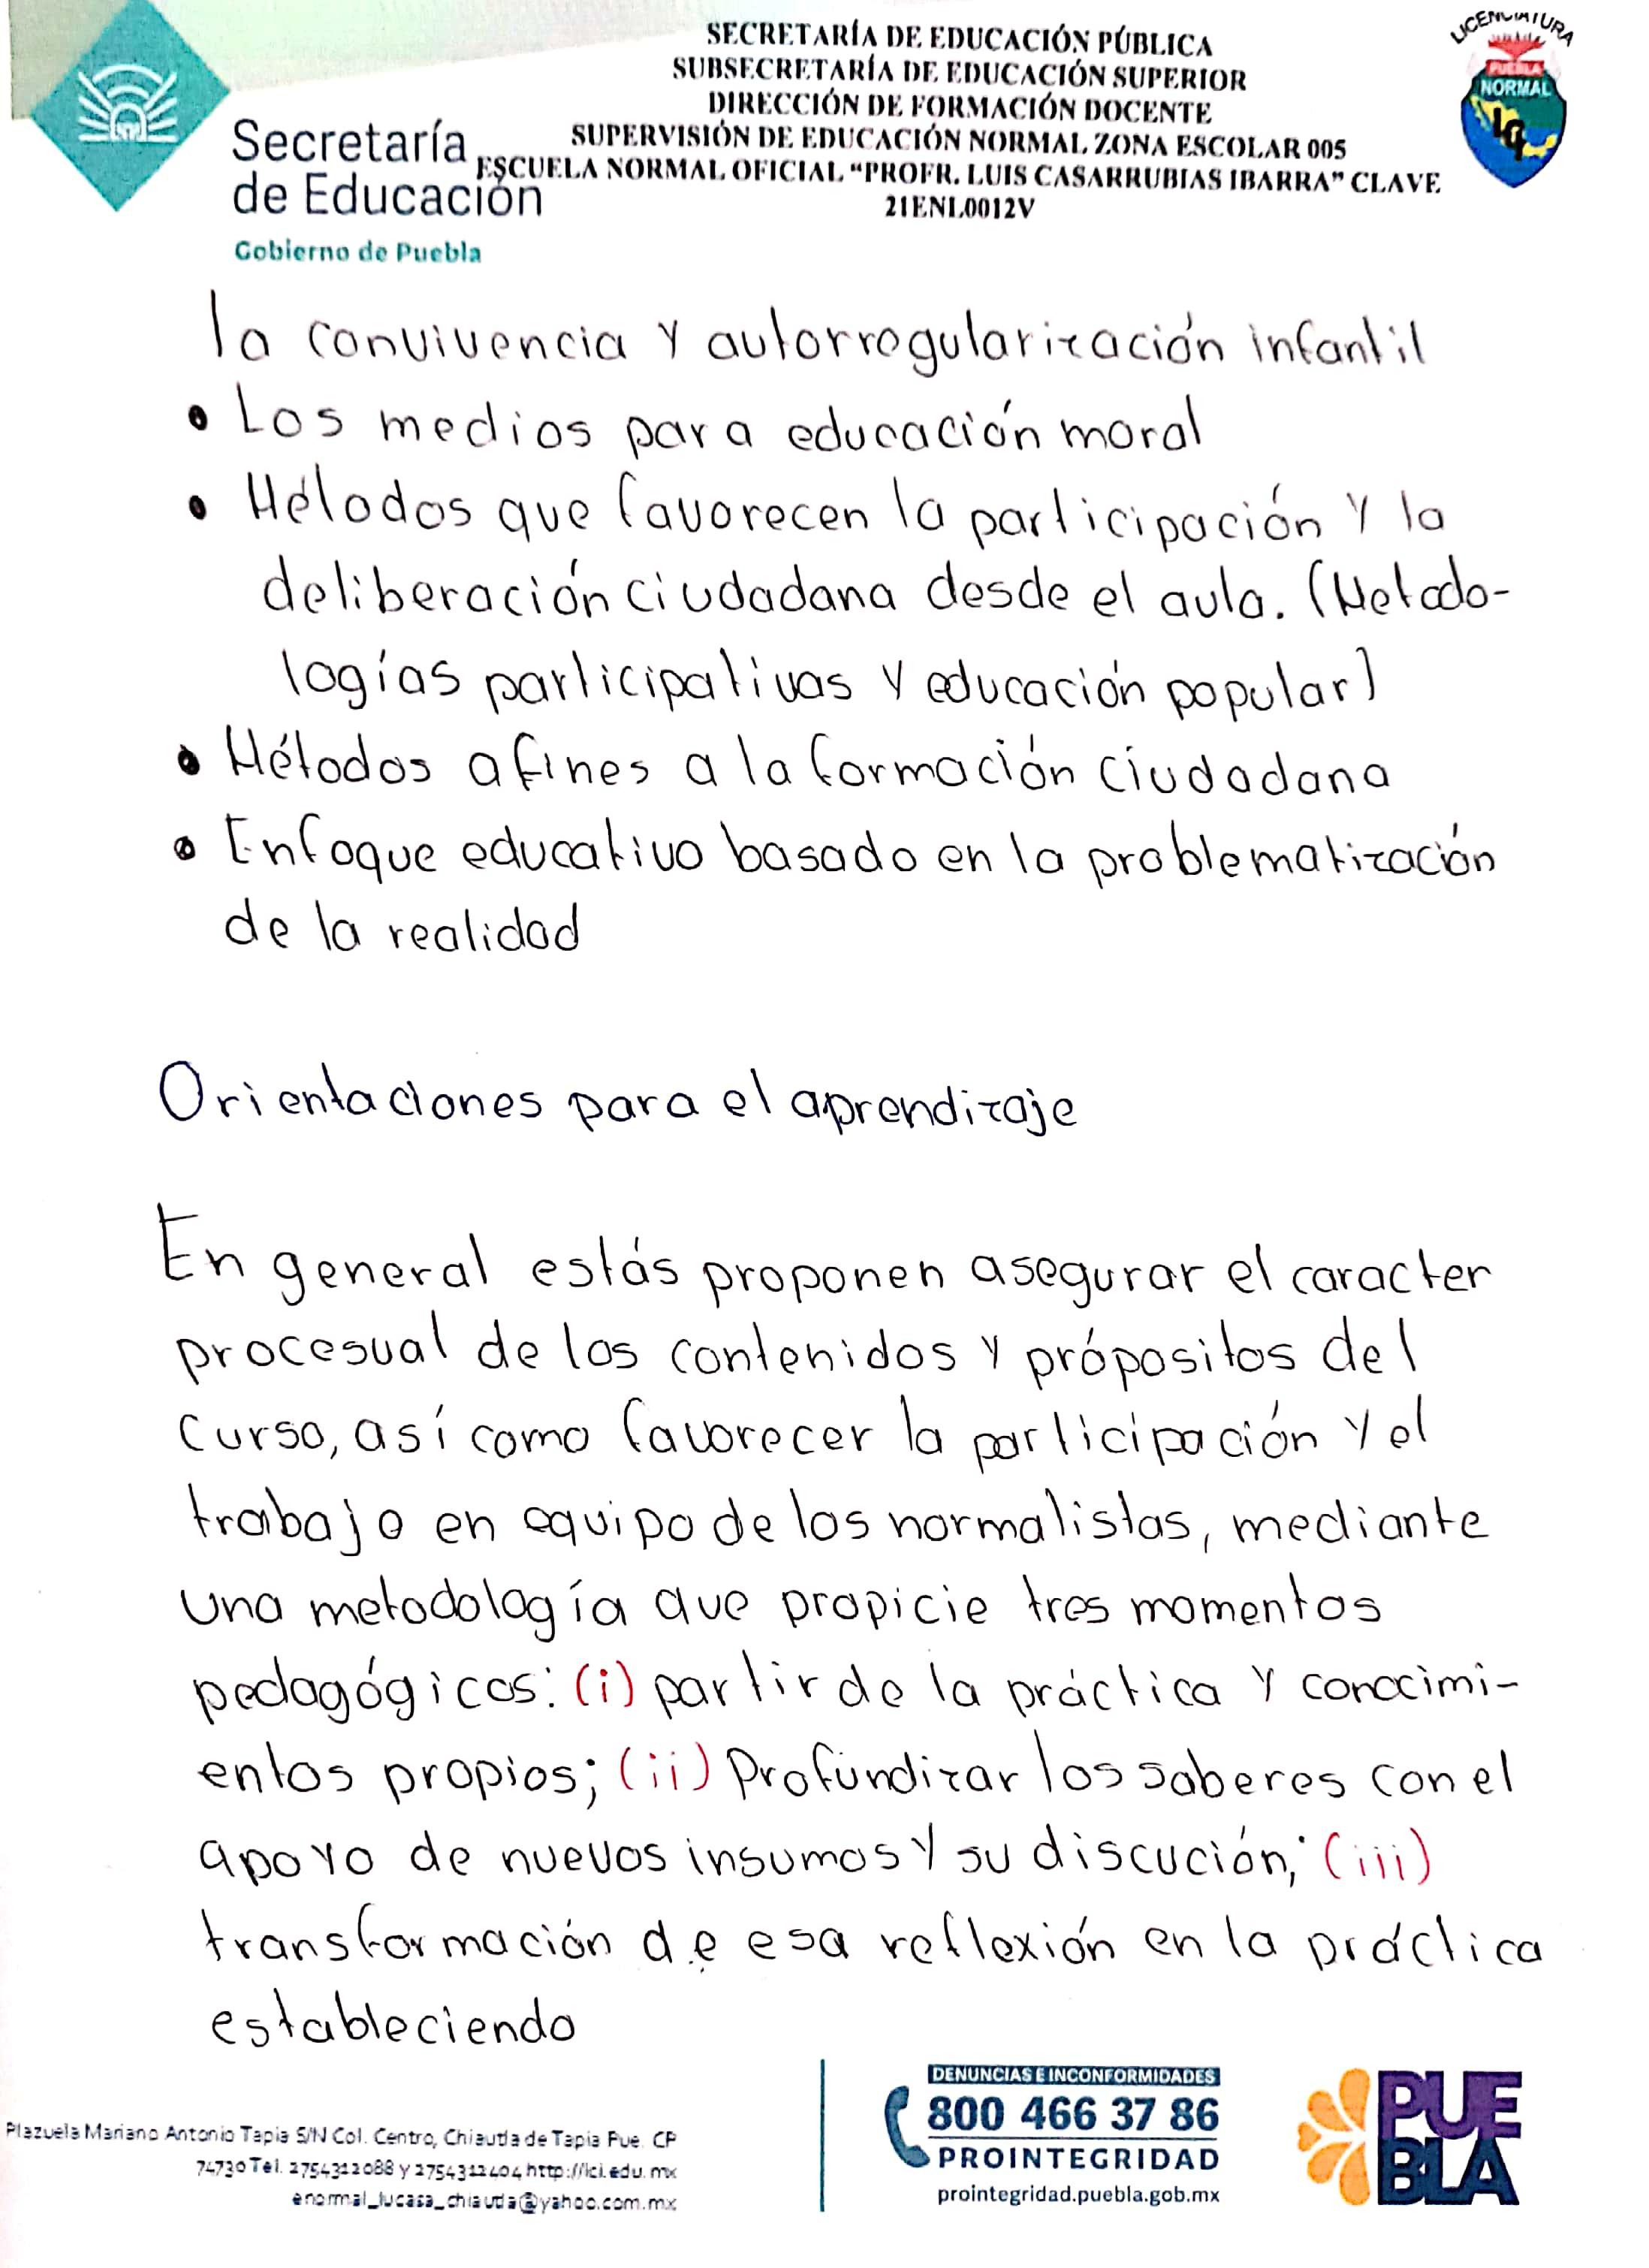 SECRETARÍA DE EDUCACIÓN PÚBLICA
SUBSECRETARÍA DE EDUCACIÓN SUPERIOR
DIRECCIÓN DE FORMACIÓN DOCENTE
SUPERVISIÓN DE EDUCACIÓN NORMAL ZONA ESCOLAR 005
ESCUELA NORMAL OFICIAL “PROFR. LUIS CASARRUBIAS IBARRA” CLAVE
21ENL0012V
Secretaría
de Educación
Gobierno de Puebla
LICENCIATURA
PUEBLA
NORMAL
la convivencia y autorregularización infantil
• Los medios para educación moral
• Métodos que favorecen la participación y la
deliberación ciudadana desde el aula. (Metodo-
logías participativas y educación popular)
• Métodos afines a la formación ciudadana
• Enfoque educativo basado en la problematización
de la realidad
Orientaciones para el aprendizaje
En general estás proponen asegurar el caracter
procesual de los contenidos y própositos del
curso, así como favorecer la participación y el
trabajo en equipo de los normalistas, mediante
una metodología que propicie tres momentos
pedagógicos: (i) partir de la práctica y conocimi-
entos propios; (ii) Profundizar los saberes con el
apoyo de nuevos insumos y su discución; (iii)
transformación de esa reflexión en la práctica
estableciendo
Plazuela Mariano Antonio Tapia S/N Col. Centro, Chiautla de Tapia Pue. CP
74730 Tel. 2754312088 y 2754312404 http://lci.edu.mx
enormal_lucasa_chiautla@yahoo.com.mx
DENUNCIAS E INCONFORMIDADES
800 466 37 86
PROINTEGRIDAD
prointegridad.puebla.gob.mx
PUE
BLA